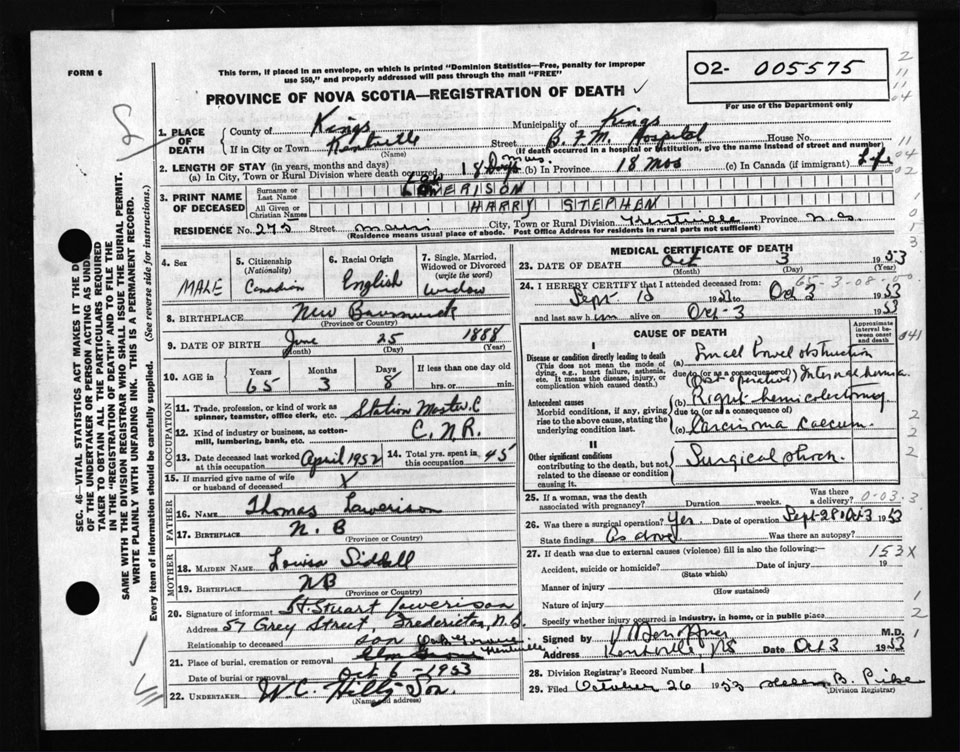 FORM 6
This form, if placed in an envelope, on which is printed "Dominion Statistics—Free, penalty for improper
use $50," and properly addressed will pass through the mail "FREE"
02- 005575
For use of the Department only
PROVINCE OF NOVA SCOTIA—REGISTRATION OF DEATH ✓
1. PLACE OF DEATH
County of Kings Municipality of Kings
If in City or Town Kentville Street B.F.M. Hospital House No.
(Name) (If death occurred in a hospital or institution, give the name instead of street and number)
2. LENGTH OF STAY (in years, months and days)
(a) In City, Town or Rural Division where death occurred 18 mos. (b) In Province 18 mos (c) In Canada (if immigrant) Life
3. PRINT NAME OF DECEASED
Surname or Last Name LOWERISON
All Given or Christian Names HARRY STEPHEN
RESIDENCE No. 275 Street Main City, Town or Rural Division Kentville Province N.S.
(Residence means usual place of abode. Post Office Address for residents in rural parts not sufficient)
4. Sex MALE
5. Citizenship (Nationality) Canadian
6. Racial Origin English
7. Single, Married, Widowed or Divorced (write the word) widow
8. BIRTHPLACE New Brunswick
(Province or Country)
9. DATE OF BIRTH June 25 1888
(Month) (Day) (Year)
10. AGE in Years 65 Months 3 Days 8 If less than one day old hrs. or min.
OCCUPATION
11. Trade, profession, or kind of work as spinner, teamster, office clerk, etc. Station Master
12. Kind of industry or business, as cotton-mill, lumbering, bank, etc. C.N.R.
13. Date deceased last worked at this occupation April 1952
14. Total yrs. spent in this occupation 45
15. If married give name of wife or husband of deceased X
FATHER
16. Name Thomas Lowerison
17. Birthplace N.B
(Province or Country)
MOTHER
18. MAIDEN NAME Louisa Siddall
19. BIRTHPLACE NB
(Province or Country)
20. Signature of informant H. Stuart Lowerison
Address 57 Grey Street Fredericton, N.B.
Relationship to deceased son
21. Place of burial, cremation or removal Kentville
Date of burial or removal Oct 6 - 1953
22. UNDERTAKER W.C. Hiltz Son.
(Name and address)
MEDICAL CERTIFICATE OF DEATH
23. DATE OF DEATH Oct 3 1953
(Month) (Day) (Year)
24. I HEREBY CERTIFY that I attended deceased from:
Sept 15 1953 to Oct 3 1953
and last saw him alive on Oct-3 1953
CAUSE OF DEATH
Approximate interval between onset and death
I
Disease or condition directly leading to death
(This does not mean the mode of dying, e.g., heart failure, asthenia, etc. It means the disease, injury, or complication which caused death.)
(a) Small bowel obstruction
due to (or as a consequence of)
(Post-operative) Internal hernia
Antecedent causes
Morbid conditions, if any, giving rise to the above cause, stating the underlying condition last.
(b) Right hemicolectomy
due to (or as a consequence of)
(c) Carcinoma caecum
II
Other significant conditions
contributing to the death, but not related to the disease or condition causing it.
Surgical shock.
25. If a woman, was the death associated with pregnancy? Duration weeks. Was there a delivery?
26. Was there a surgical operation? Yes Date of operation Sept-28 Oct 3 1953
State findings As above Was there an autopsy?
27. If death was due to external causes (violence) fill in also the following:—
Accident, suicide or homicide? Date of injury 19
(State which)
Manner of injury
(How sustained)
Nature of injury
Specify whether injury occurred in industry, in home, or in public place
153X
Signed by M.D.
Address Kentville, NS Date Oct 3 1953
28. Division Registrar's Record Number 1
29. Filed October 26 1953 Helen B. Pike
(Division Registrar)
SEC. 46—VITAL STATISTICS ACT MAKES IT THE
OF THE UNDERTAKER OR PERSON ACTING AS
TAKER TO OBTAIN ALL THE PARTICULARS REQUIRED
IN THE "REGISTRATION OF DEATH" AND TO FILE THE
SAME WITH THE DIVISION REGISTRAR WHO SHALL ISSUE THE BURIAL PERMIT.
WRITE PLAINLY WITH UNFADING INK. THIS IS A PERMANENT RECORD.
Every item of information should be carefully supplied. (See reverse side for instructions.)